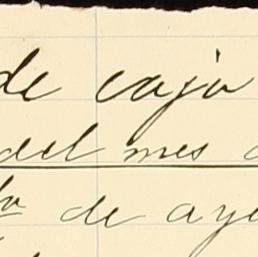 de caja
del mes
de aye